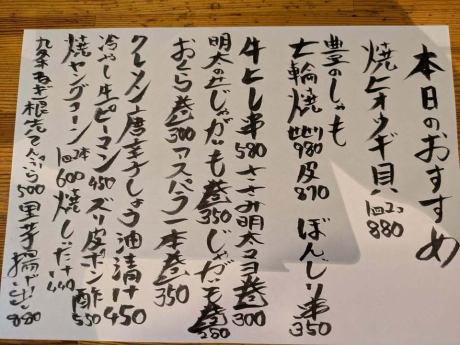 本日のおすすめ
焼ヒオウギ貝 1皿2コ 880
豊のしゃも
七輪焼 せせり980 皮870 ぼんじり串350
牛ヒレ串580 ささみ明太マヨ巻300
明太のせじゃがいも巻350 じゃがいも巻250
おくら巻300 アスパラ一本巻350
クレソン唐辛子しょう油漬け450
冷やし生ピーマン450 ズリ皮ポン酢550
焼ヤングコーン 1皿2本600 焼しいたけ
九条ねぎ根先 500 里芋揚げ出し 880